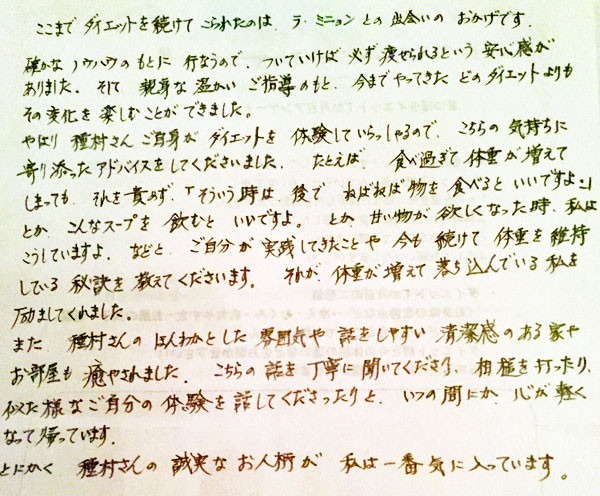 ここまで ダイエットを続けて こられたのは、ラ・ミニョン との 出会いの おかげです。
確かな ノウハウの もとに 行なうので、ついていけば 必ず 痩せられるという 安心感が
ありました。そして 親身な 温かい ご指導のもと、今までやってきた どの ダイエットよりも
その変化を 楽しむことが できました。
やはり 種村さん ご自身が ダイエットを 体験していらっしゃるので、こちらの 気持ちに
寄り添ったアドバイスをしてくださいました。たとえば 食べ過ぎて 体重が 増えて
しまっても、それを責めず、「そういう時は 後で ねばねば物を 食べると いいですよ」
とか、こんなスープを 飲むと いいですよ。とか 甘い物が 欲しくなった時、私は
こうしていますよ、などと、ご自分が 実践してきたことや 今も 続けて 体重を 維持
している 秘訣を 教えてくださいます。それが、体重が 増えて 落ち込んでいる 私を
励ましてくれました。
また 種村さんの ほんわかとした 雰囲気や 話をしやすい 清潔感のある 家や
お部屋も 癒やされました。こちらの 話を 丁寧に 聞いてくださり、相槌を 打ったり、
似た様な ご自分の 体験を 話してくださったりと、いつの 間にか、心が 軽く
なって 帰っています。
とにかく 種村さんの 誠実な お人柄が 私は 一番 気に 入っています。